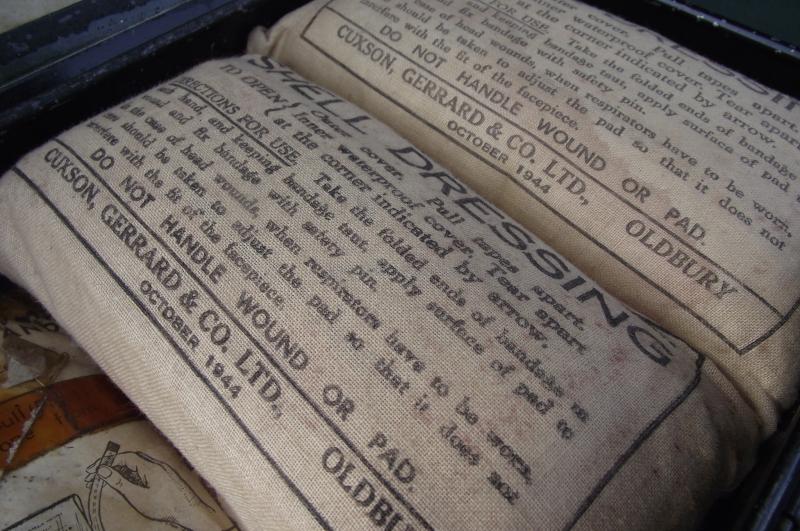 SHELL DRESSING
TO OPEN { Outer cover. Pull tapes apart.
Inner waterproof cover. Tear apart
(at the corner indicated by arrow.
DIRECTIONS FOR USE. Take the folded ends of bandage in
hand, and keeping bandage taut apply surface of pad to
wound and fix bandage with safety pin.
In the case of head wounds, when respirators have to be worn,
care should be taken to adjust the pad so that it does not
interfere with the fit of the facepiece.
DO NOT HANDLE WOUND OR PAD.
CUXSON, GERRARD & CO. LTD., OLDBU
OCTOBER 1944
DRESSING
cover. Pull tapes apart.
waterproof cover. Tear apart
at the corner indicated by arrow.
FOR USE. Take the folded ends of bandage
and keeping bandage taut, apply surface of pad
fix bandage with safety pin.
case of head wounds, when respirators have to be worn,
should be taken to adjust the pad so that it does not
interfere with the fit of the facepiece.
DO NOT HANDLE WOUND OR PAD.
CUXSON, GERRARD & CO. LTD., OLDBURY
OCTOBER 1944